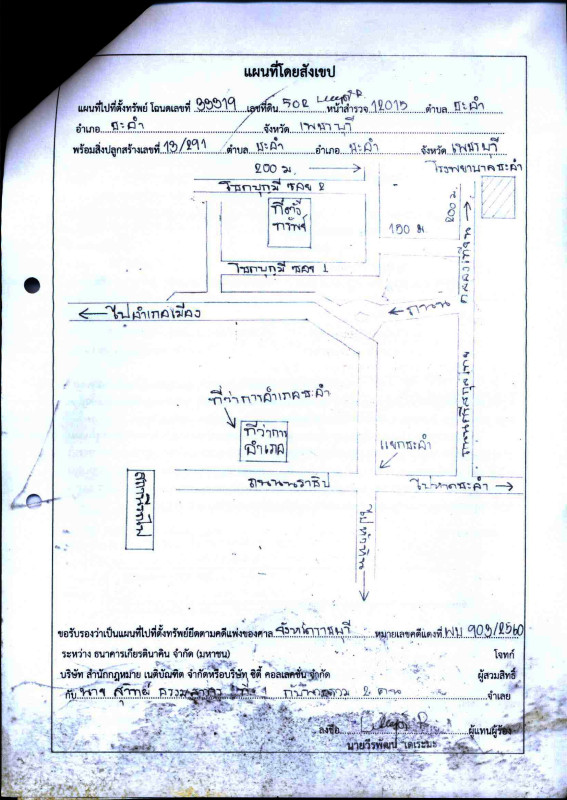 แผนที่โดยสังเขป
แผนที่ไปที่ตั้งทรัพย์ โฉนดเลขที่ 39919 เลขที่ดิน 502 หน้าสำรวจ 12015 ตำบล ชะอำ
อำเภอ ชะอำ จังหวัด เพชรบุรี
พร้อมสิ่งปลูกสร้างเลขที่ 13/291 ตำบล ชะอำ อำเภอ ชะอำ จังหวัด เพชรบุรี
200 ม.
โรงพยาบาลชะอำ
โชคบุญมี ซอย 2
ที่ตั้ง
ทรัพย์
200 ม.
150 ม.
คลองเทียน
โชคบุญมี ซอย 1
ไปอำเภอเมือง
ที่ว่าการอำเภอชะอำ
ที่ว่าการ
อำเภอ
แยกชะอำ
ถนนนราธิป
ไปหาดชะอำ
ไปหัวหิน
สถานีรถไฟ
ขอรับรองว่าเป็นแผนที่ไปที่ตั้งทรัพย์ยึดตามคดีแพ่งของศาล จังหวัดราชบุรี หมายเลขคดีแดงที่ ผบ 903/2560
ระหว่าง ธนาคารเกียรตินาคิน จำกัด (มหาชน) โจทก์
บริษัท สำนักกฎหมาย เนติบัณฑิต จำกัดหรือบริษัท ซิตี้ คอลเลคชั่น จำกัด ผู้สวมสิทธิ์
กับ นาย 2 คน จำเลย
ลงชื่อ ผู้แทนผู้ร้อง
นายวีรพัฒน์ เดเระมะ